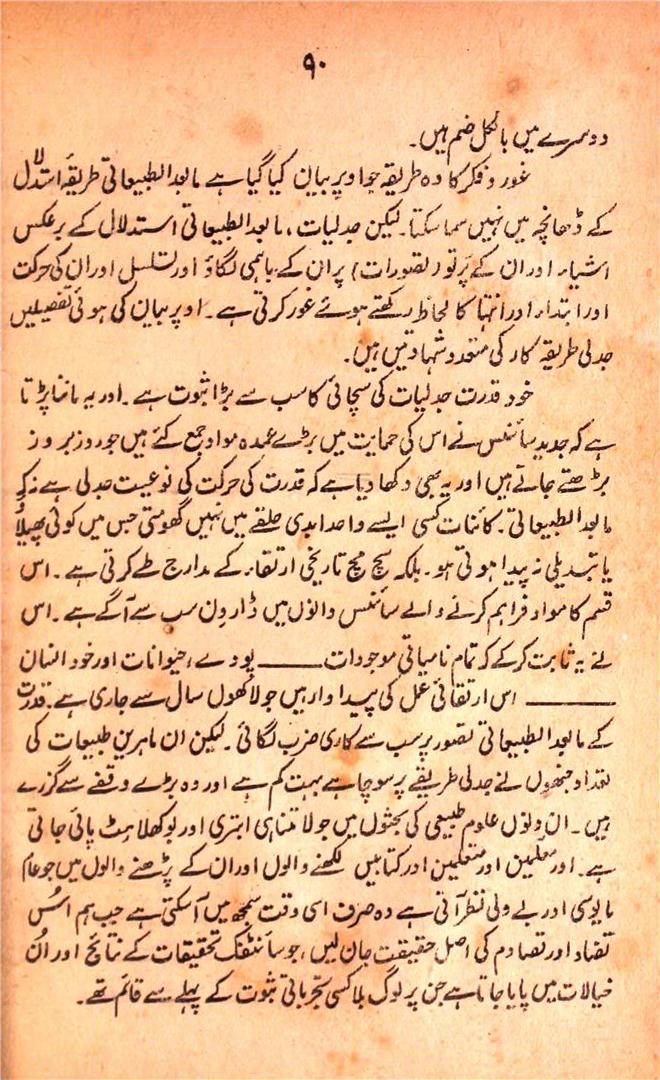 ۹۰
دوسرے میں بالکل ضم ہیں۔
غور و فکر کا وہ طریقہ جو اوپر بیان کیا گیا ہے مابعد الطبیعاتی طریقۂ استدلال
کے ڈھانچہ میں نہیں سما سکتا۔ لیکن جدلیات، مابعد الطبیعاتی استدلال کے برعکس
اشیاء اور ان کے پرتو (تصورات) پر ان کے باہمی لگاؤ اور تسلسل اور ان کی حرکت
اور ابتداء اور انتہا کا لحاظ رکھتے ہوئے غور کرتی ہے۔ اوپر بیان کی ہوئی تفصیلیں
جدلی طریقہ کار کی متعدد شہادتیں ہیں۔
خود قدرت جدلیات کی سچائی کا سب سے بڑا ثبوت ہے۔ اور یہ ماننا پڑتا
ہے کہ جدید سائنس نے اس کی حمایت میں بڑے عمدہ مواد جمع کئے ہیں جو روز بروز
بڑھتے جاتے ہیں اور یہ بھی دکھا دیا ہے کہ قدرت کی حرکت کی نوعیت جدلی ہے نہ کہ
مابعد الطبیعاتی۔ کائنات کسی ایسے واحد ابدی حلقے میں نہیں گھومتی جس میں کوئی پھیلاؤ
یا تبدیلی نہ پیدا ہوتی ہو۔ بلکہ سچ مچ تاریخی ارتقاء کے مدارج طے کرتی ہے۔ اس
قسم کا مواد فراہم کرنے والے سائنس دانوں میں ڈارون سب سے آگے ہے۔ اس
نے یہ ثابت کر کے کہ تمام نامیاتی موجودات ــــــ پودے، حیوانات اور خود انسان
ــــــ اس ارتقائی عمل کی پیداوار ہیں جو لاکھوں سال سے جاری ہے۔ قدرت
کے مابعد الطبیعاتی تصور پر سب سے کاری ضرب لگائی۔ لیکن ان ماہرین طبیعات کی
تعداد جنھوں نے جدلی طریقے پر سوچا ہے بہت کم ہے اور وہ بڑے وقفے سے گزرے
ہیں۔ ان دنوں علوم طبیعی کی بحثوں میں جو لا متناہی ابتری اور بوکھلاہٹ پائی جاتی
ہے۔ اور معلمین اور متعلمین اور کتابیں لکھنے والوں اور ان کے پڑھنے والوں میں جو عام
مایوسی اور بے ولی نظر آتی ہے وہ صرف اسی وقت سمجھ میں آ سکتی ہے جب ہم اسُ
تضاد اور تصادم کی اصل حقیقت جان لیں، جو سائنٹفک تحقیقات کے نتائج اور اُن
خیالات میں پایا جاتا ہے جن پر لوگ بلا کسی تجرباتی ثبوت کے پہلے سے قائم تھے۔